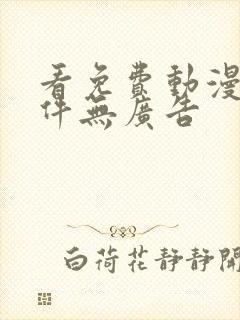 看免費動漫
件無廣告
白荷花靜靜開